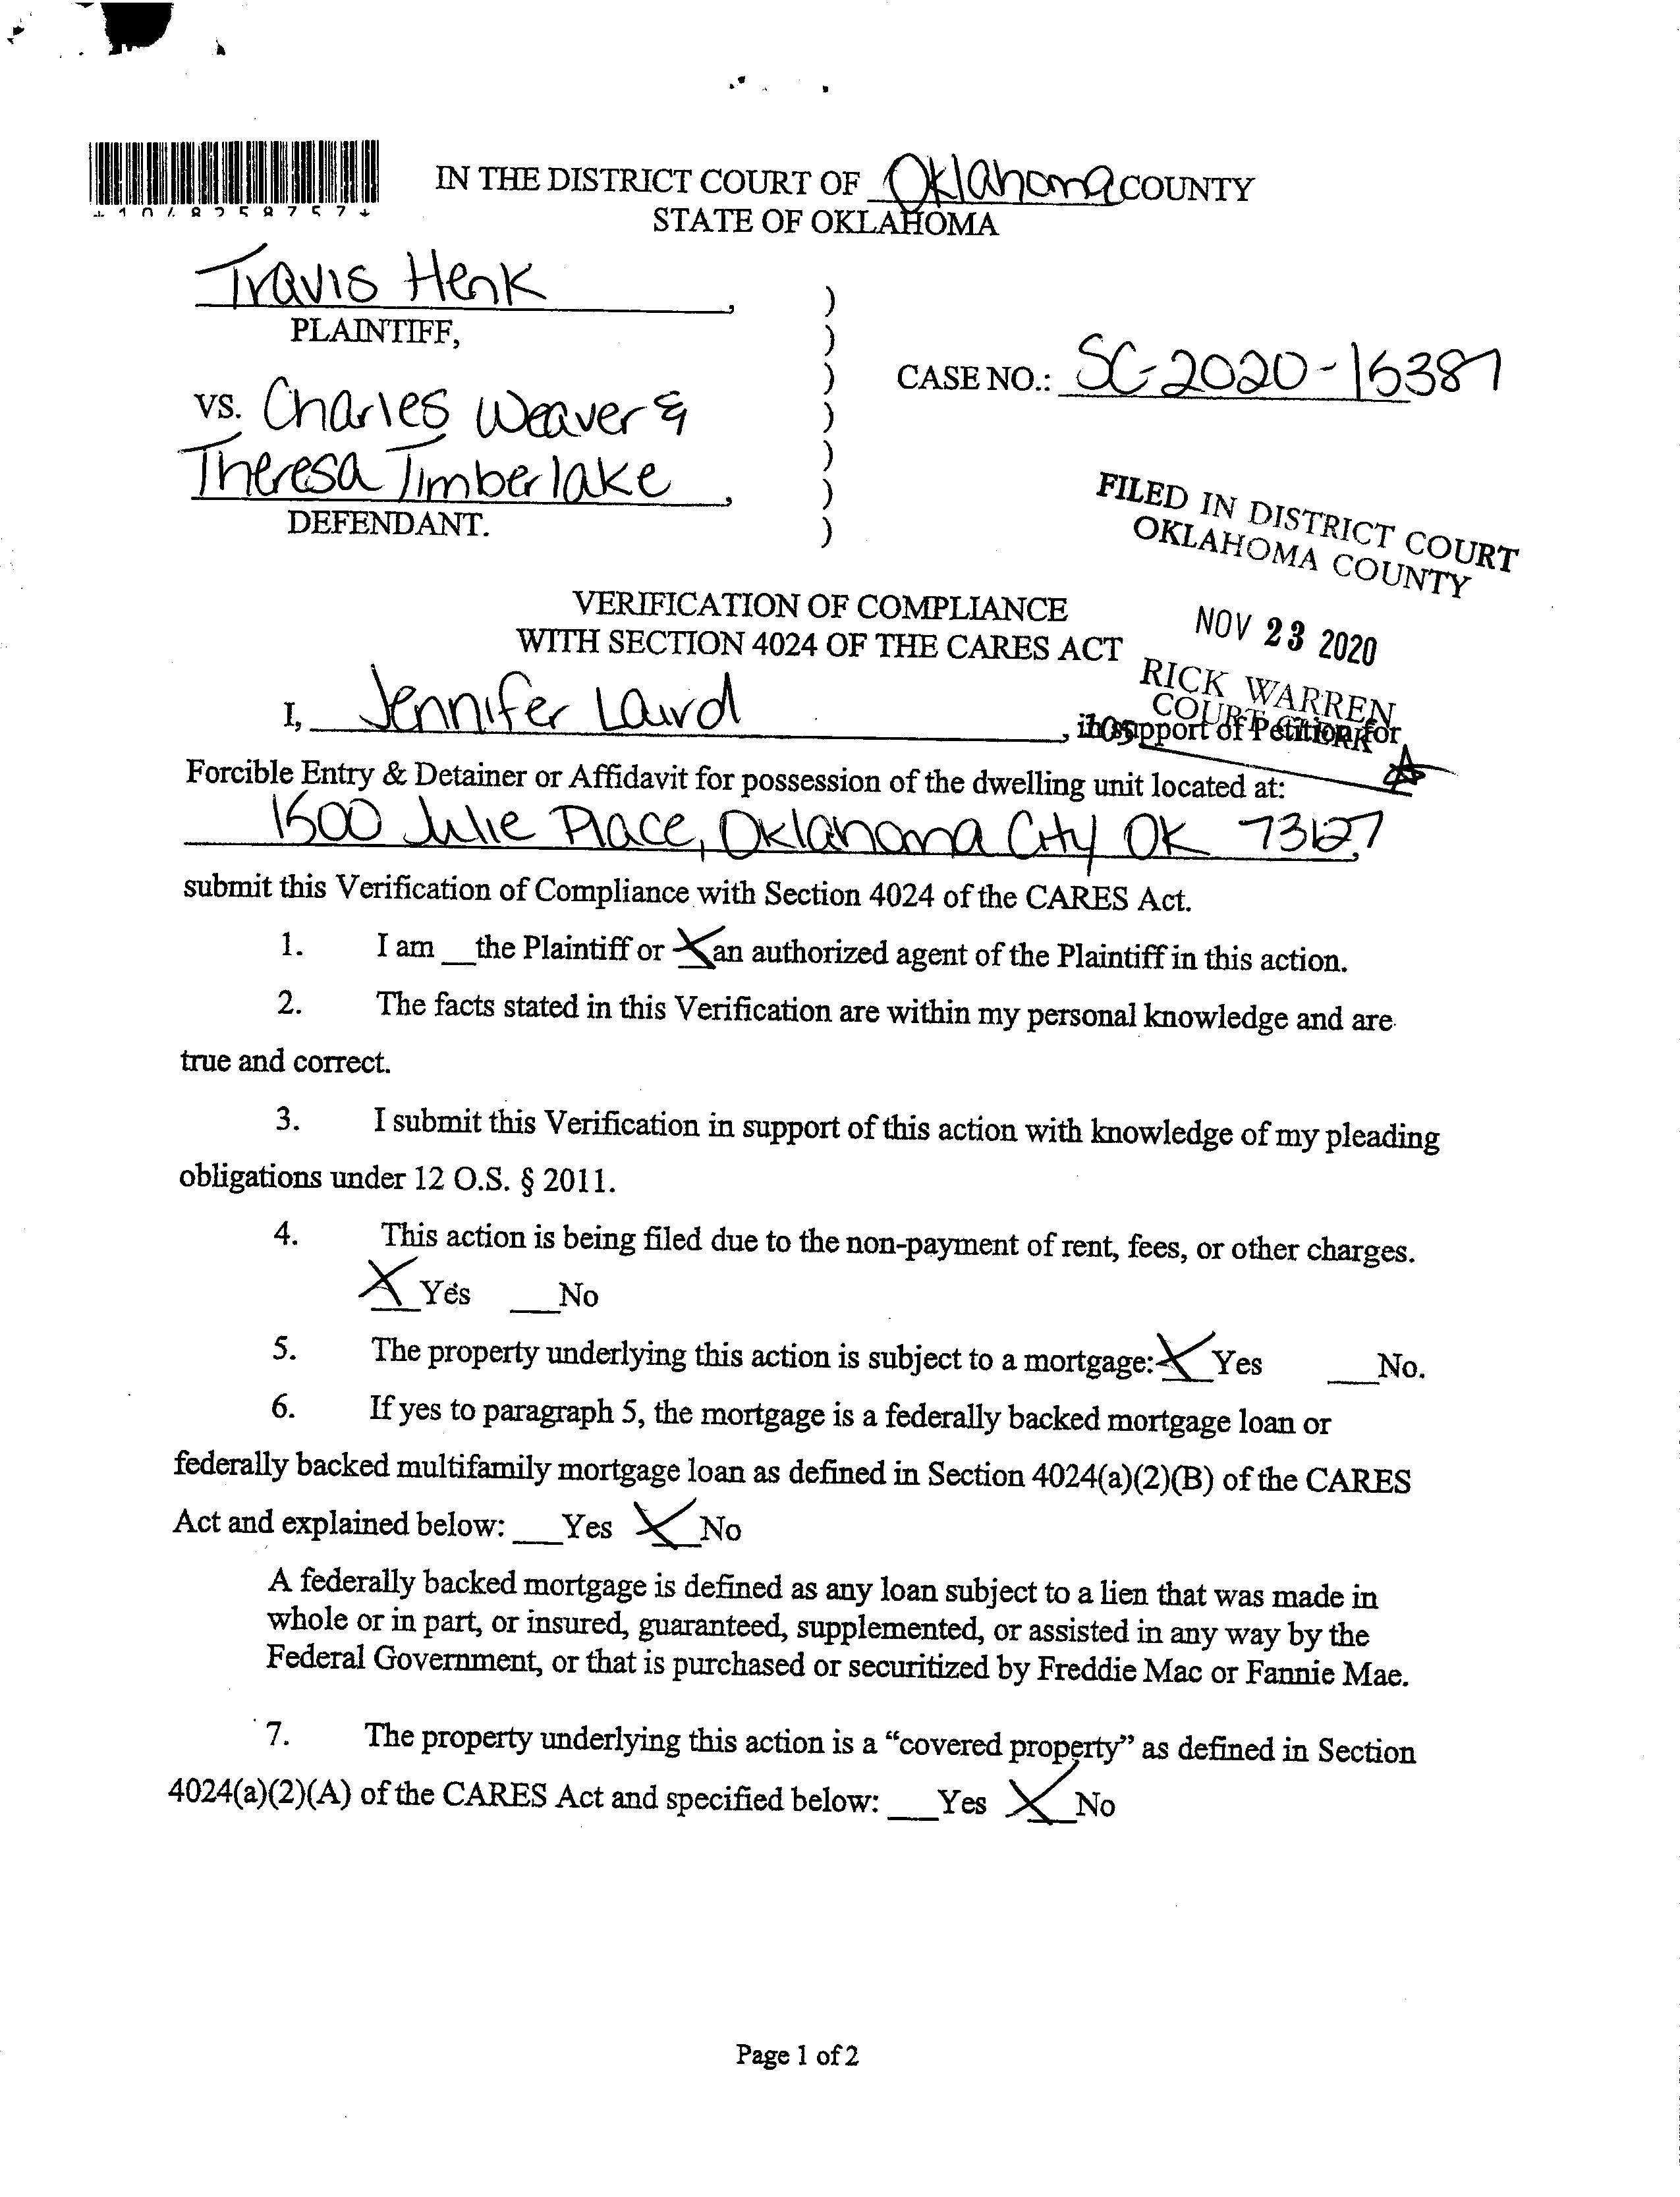 IN THE DISTRICT COURT OF Oklahoma COUNTY
STATE OF OKLAHOMA
Travis Henk,
PLAINTIFF,
vs. Charles Weaver &
Theresa Timberlake,
DEFENDANT.
)
)
)
)
)
)
)
CASE NO.: SC-2020-15387
FILED IN DISTRICT COURT
OKLAHOMA COUNTY
NOV 23 2020
RICK WARREN
COURT CLERK
105
VERIFICATION OF COMPLIANCE
WITH SECTION 4024 OF THE CARES ACT
I, Jennifer Laird, in support of Petition for
Forcible Entry & Detainer or Affidavit for possession of the dwelling unit located at:
1500 Julie Place, Oklahoma City OK 73127,
submit this Verification of Compliance with Section 4024 of the CARES Act.
1. I am __the Plaintiff or X an authorized agent of the Plaintiff in this action.
2. The facts stated in this Verification are within my personal knowledge and are
true and correct.
3. I submit this Verification in support of this action with knowledge of my pleading
obligations under 12 O.S. § 2011.
4. This action is being filed due to the non-payment of rent, fees, or other charges.
X Yes ___No
5. The property underlying this action is subject to a mortgage: X Yes ___No.
6. If yes to paragraph 5, the mortgage is a federally backed mortgage loan or
federally backed multifamily mortgage loan as defined in Section 4024(a)(2)(B) of the CARES
Act and explained below: ___Yes X No
A federally backed mortgage is defined as any loan subject to a lien that was made in
whole or in part, or insured, guaranteed, supplemented, or assisted in any way by the
Federal Government, or that is purchased or securitized by Freddie Mac or Fannie Mae.
7. The property underlying this action is a “covered property” as defined in Section
4024(a)(2)(A) of the CARES Act and specified below: ___Yes X No
Page 1 of 2